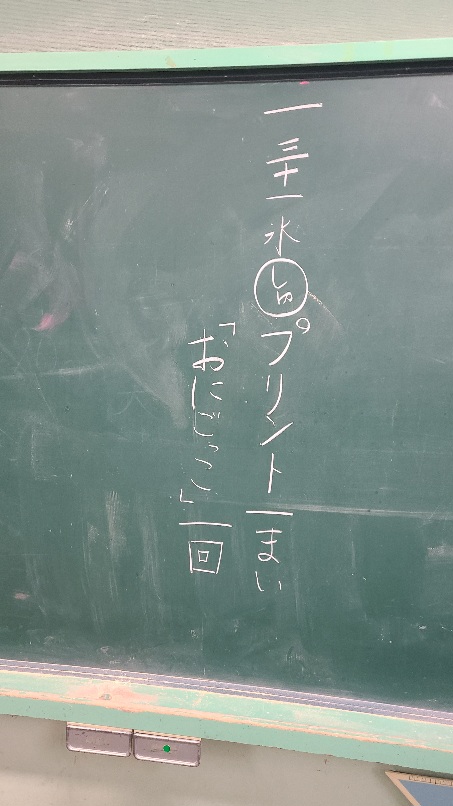 一 三十一 水 しゅ プリント一まい
「おにごっこ」一回